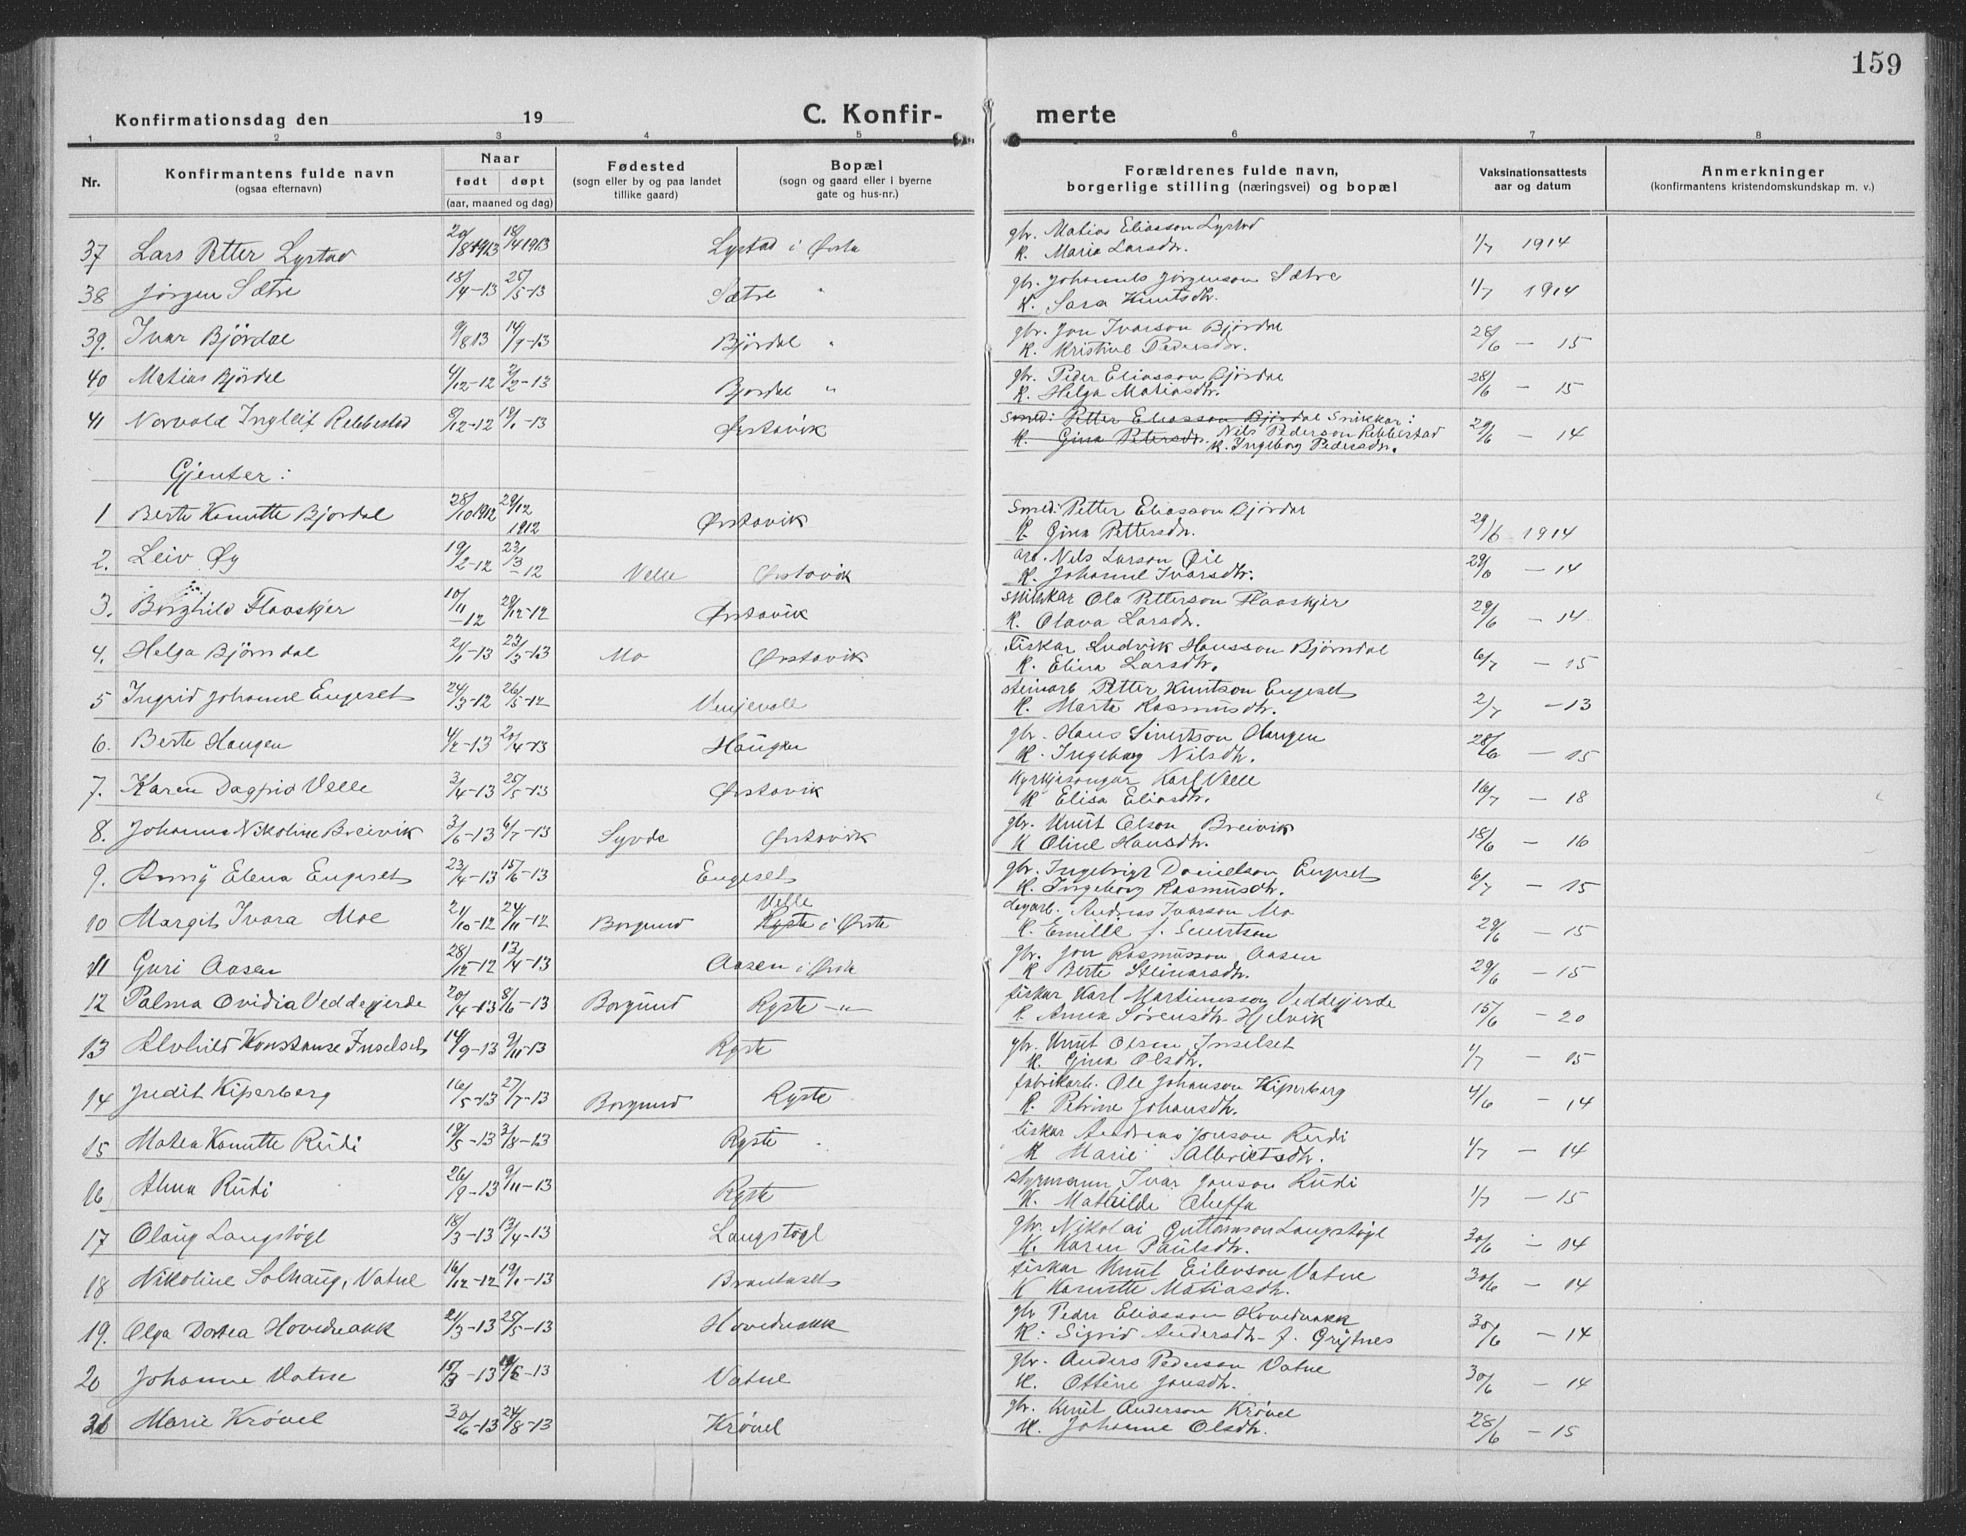 159
Konfirmationsdag den 19
C. Konfir- merte
1 2 3 4 5 6 7 8
Nr. Konfirmantens fulde navn (ogsaa efternavn) Naar født døpt (aar, maaned og dag) Fødested (sogn eller by og paa landet tillike gaard) Bopæl (sogn og gaard eller i byerne gate og hus-nr.) Forældrenes fulde navn, borgerlige stilling (næringsvei) og bopæl Vaksinationsattests aar og datum Anmerkninger (konfirmantens kristendomskundskap m. v.)
37 Lars Petter Lystad 20/8 1913 18/4 1913 Lystad i Ørsta gbr. Matias Eliasson Lystad 1/7 1914
K. Maria Larsdtr.
38 Jørgen Sætre 18/4-13 25/5-13 Sætre " gbr. Johannes Jørgenson Sætre 1/7 1914
K. Sara Knutsdtr.
39. Ivar Bjørdal 9/8 13 14/9-13 Bjørdal " gbr. Jon Ivarson Bjørdal 28/6 - 15
K. Kristine Pedersdtr.
40 Matias Bjørdal 4/12-12 2/2-13 Bjørdal " gbr. Peder Eliasson Bjørdal 28/6 - 15
K. Helga Matiasdtr.
41 Norvald Ingleif Rebbestad 8/12-12 19/1-13 Ørstavik Smed: Petter Eliasson Bjørdal Snikkar: 29/6 - 14
K. Gina Petersdtr. Nils Pederson Rebbestad
K. Ingeborg Pedersdtr.
Gjenter:
1 Berte Kanutte Bjørdal 28/10 1912 29/12 1912 Ørstavik Smed: Petter Eliasson Bjørdal 29/6 1914
K. Gina Pettersdtr.
2. Leiv Øy 19/2-12 23/3-12 Velle Ørstavik arb. Nils Larson Øie 29/6 - 14
K. Johanne Ivarsdtr.
3. Borghild Flaaskjer 10/11-12 29/12-12 Ørstavik snikkar Ola Petterson Flaaskjer 29/6 - 14
K. Olava Larsdtr.
4. Helga Bjørndal 21/1-13 23/3-13 Mo Ørstavik Fiskar Ludvik Hansson Bjørndal 6/7 - 15
K. Elina Larsdtr.
5 Ingrid Johanne Engeset 24/3-12 26/5-12 Venjevoll steinarb Petter Knutson Engeset 2/7 - 13
K. Marta Rasmusdtr.
6. Berte Haugen 4/2-13 20/4-13 Haugen gbr. Hans Sivertson Haugen 28/6 - 15
K. Ingeborg Nilsdtr.
7. Karen Dagfrid Velle 3/4-13 25/5-13 Ørstavik Kyrkjesongar Karl Velle 16/7 - 18
K Elisa Eliasdtr.
8. Johanna Nikoline Breivik 3/6-13 6/7-13 Syvde Ørstavik gbr. Knut Olson Breivik 18/6 - 16
K Oline Hansdtr.
9. Anny Elena Engeset 23/4-13 15/6-13 Engeset gbr. Ingebrigt Danielson Engeset 6/7 - 15
K. Ingeborg Rasmusdtr.
10 Margit Ivara Moe 21/10-12 24/11-12 Borgund Velle Ryste i Ørsta dagarb. Andreas Ivarson Mo 29/6 - 15
K. Emilie f. Sivertson
11 Guri Aasen 28/12-12 13/4-13 Aasen i Ørsta gbr. Jon Rasmusson Aasen 29/6 - 15
K Berte Steinarsdtr.
12 Palma Ovidia Veddegjerde 20/4-13 8/6-13 Borgund Ryste -"- fiskar Karl Martinusson Veddegjerde 15/6 - 20
K. Anna Sørensdtr Hjelvik
13 Alvhild Konstanse Inselset 14/9-13 9/11-13 Ryste gbr. Knut Olson Inselset 1/7 - 15
K. Gina Olsdtr.
14 Judit Kiperberg 16/5-13 27/7-13 Borgund Ryste fabrikarb. Ole Johanson Kiperberg 4/6 - 14
K. Petrine Johansdtr.
15 Matea Kanutte Rudi 19/5-13 3/8-13 Ryste fiskar Andreas Jonson Rudi 1/7 - 14
K Marie Albrigtsdtr.
16 Alma Rudi 26/9-13 9/11-13 Ryste styrmann Ivar Jonson Rudi 1/7 - 15
K. Mathilde
17 Olaug Langstøyl 18/3-13 13/4-13 Langstøyl gbr. Nikolai Guttormson Langstøyl 30/6 - 14
K. Karen Paulsdtr.
18 Nikoline Solhaug, Vatne 16/12-12 19/1-13 Brautaset fiskar Knut Eilevson Vatne 30/6 - 14
K Kanutte Matiasdtr.
19. Olga Dortea Hovdenakk 21/3-13 25/5-13 Hovdenakk gbr Peder Eliasson Hovdenakk 30/6 - 14
K: Sigrid Andersdtr. f. Grytnes
20 Johanne Vatne 15/3-13 -13 Vatne gbr. Anders Pederson Vatne 30/6 - 14
K. Ottine Jonsdtr.
21 Marie Krøvel 30/6-13 24/8-13 Krøvel gbr. Knut Anderson Krøvel 28/6 - 15
K. Johanne Olsdtr.